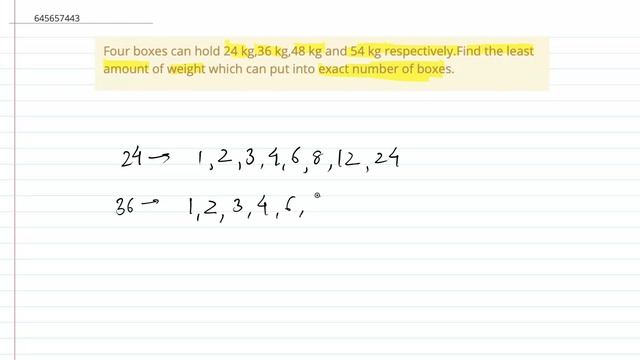 645657443
Four boxes can hold 24 kg,36 kg,48 kg and 54 kg respectively.Find the least
amount of weight which can put into exact number of boxes.
24→ 1,2,3,4,6,8,12,24
36→ 1,2,3,4,6,